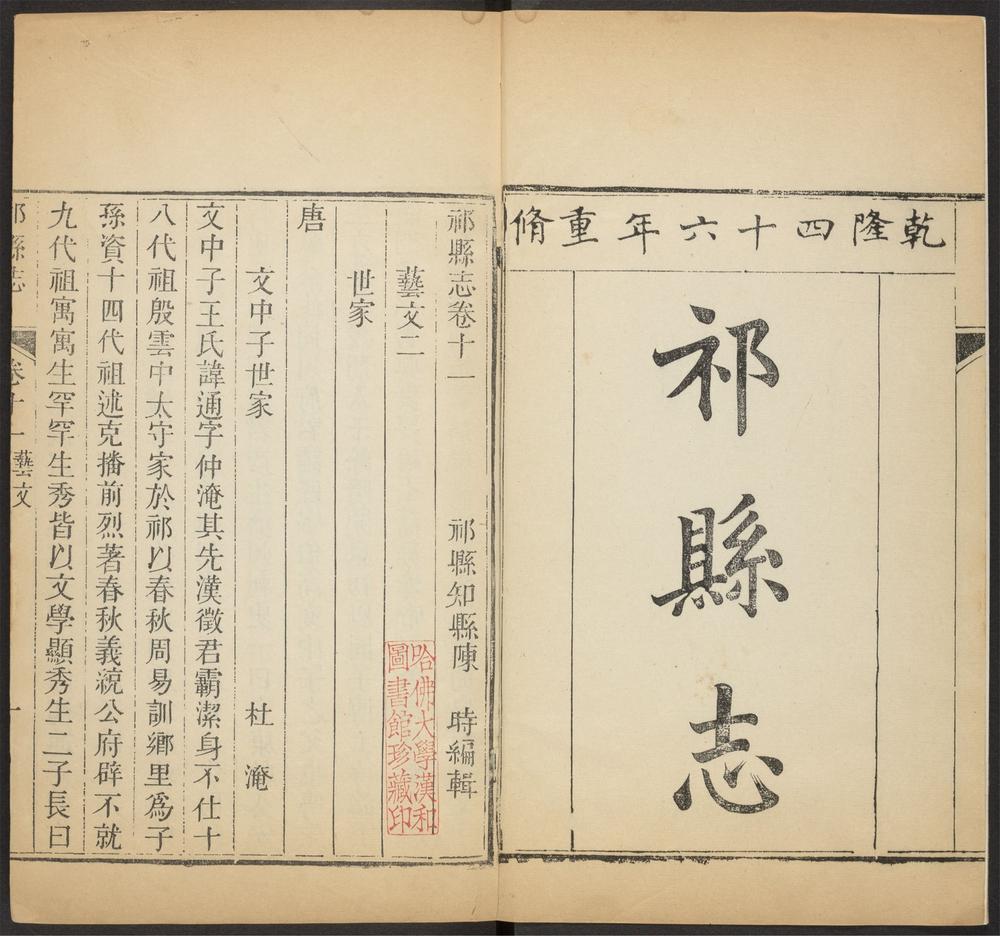 乾隆四十六年重脩
祁縣志
祁縣志卷十一 祁縣知縣陳 時編輯
藝文二
世家
唐
文中子世家 杜 淹
文中子王氏諱通字仲淹其先漢徵君霸潔身不仕十
八代祖殷雲中太守家於祁以春秋周易訓鄉里爲子
孫資十四代祖述克播前烈著春秋義統公府辟不就
九代祖寓寓生罕罕生秀皆以文學顯秀生二子長曰
祁縣志 卷十一 藝文 一
哈佛大學漢和
圖書館珍藏印